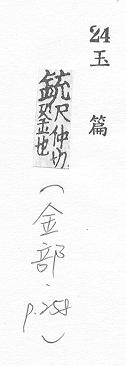 24
玉篇
銃尺仲切
銎也
(金部、p.258)